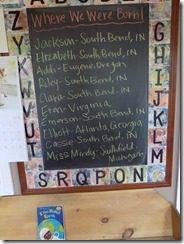 Where We Were Born!
Jackson-South Bend, IN
Elizabeth-South Bend, IN
Addi-Eugene, Oregon
Riley-South Bend, IN
Clara-South Bend, IN
Etan-Virginia
Emerson-South Bend, IN
Elliott-Atlanta, Georgia
Cassie-South Bend, IN
Miss Mindy-Southfield,
Michigan
G
H
I
J
K
L
M
S R Q P O N
Z
Y
X
W
U
T